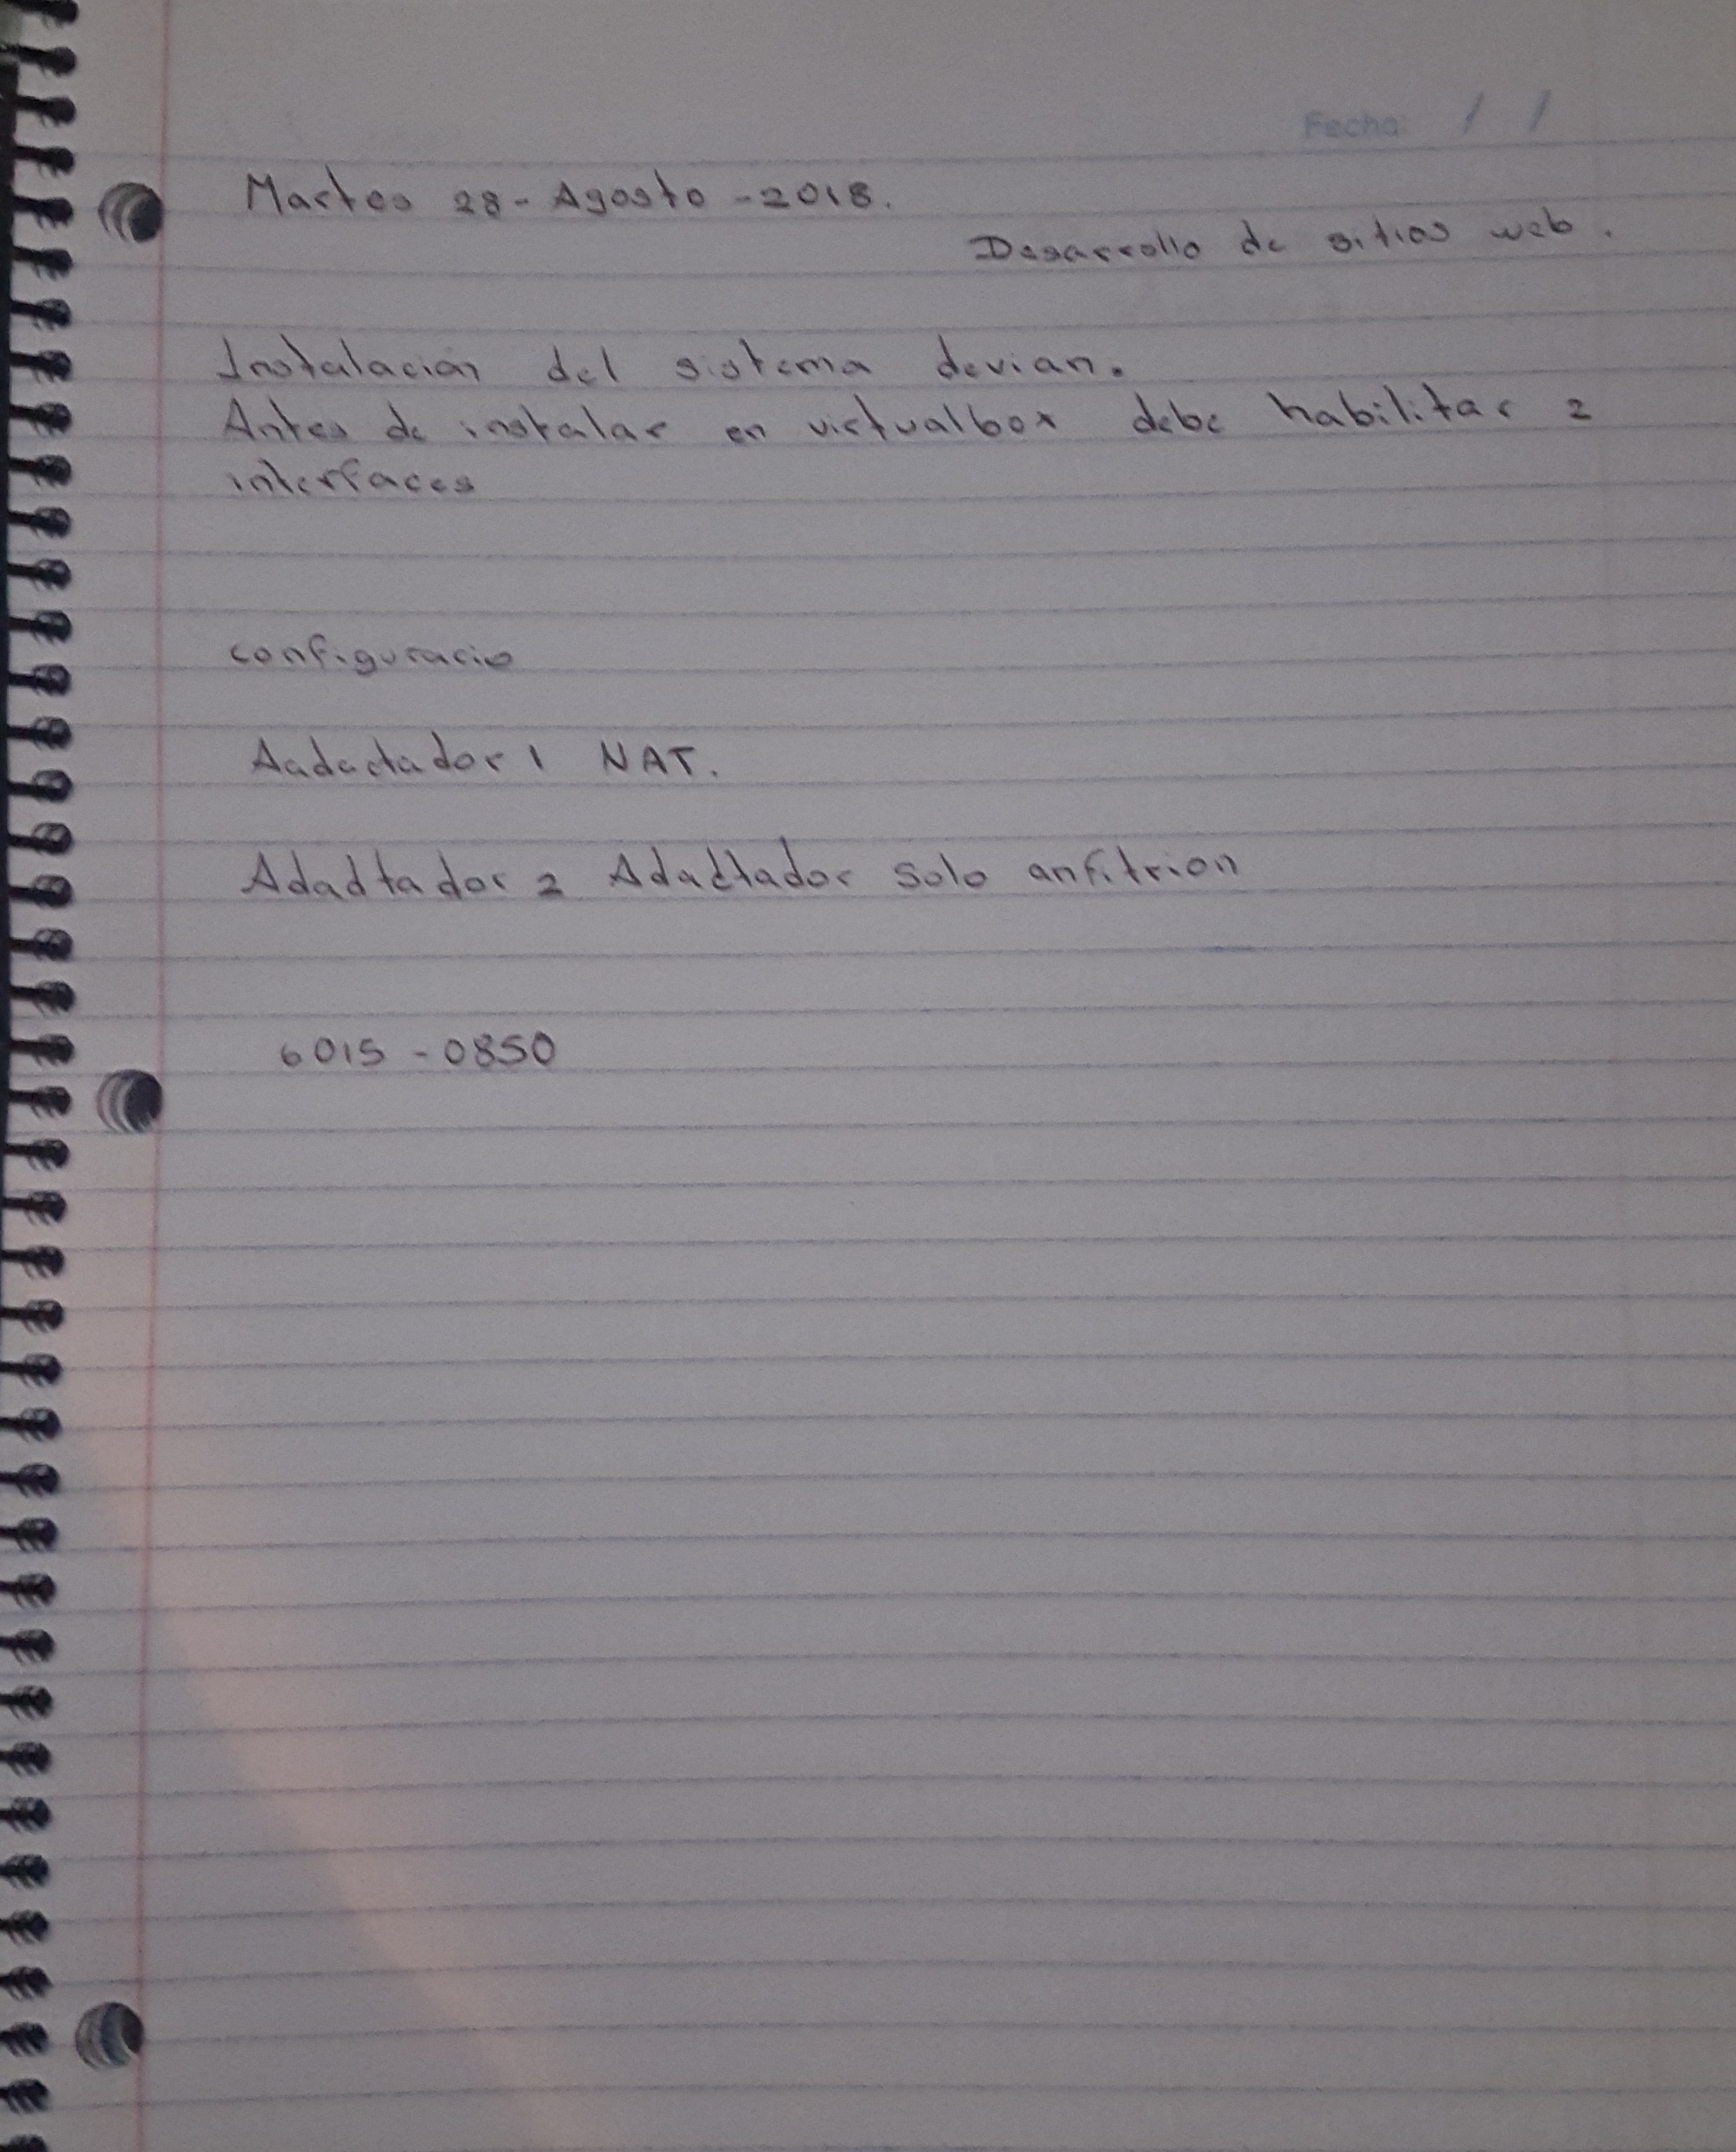 Fecha: / /
Martes 28 - Agosto - 2018.
Desarrollo de sitios web.
Instalación del sistema devian.
Antes de instalar en virtualbox debe habilitar 2
interfaces
configuracio
Aadactador 1 NAT.
Adadtador 2 Adactador solo anfitrion
6015 - 0850